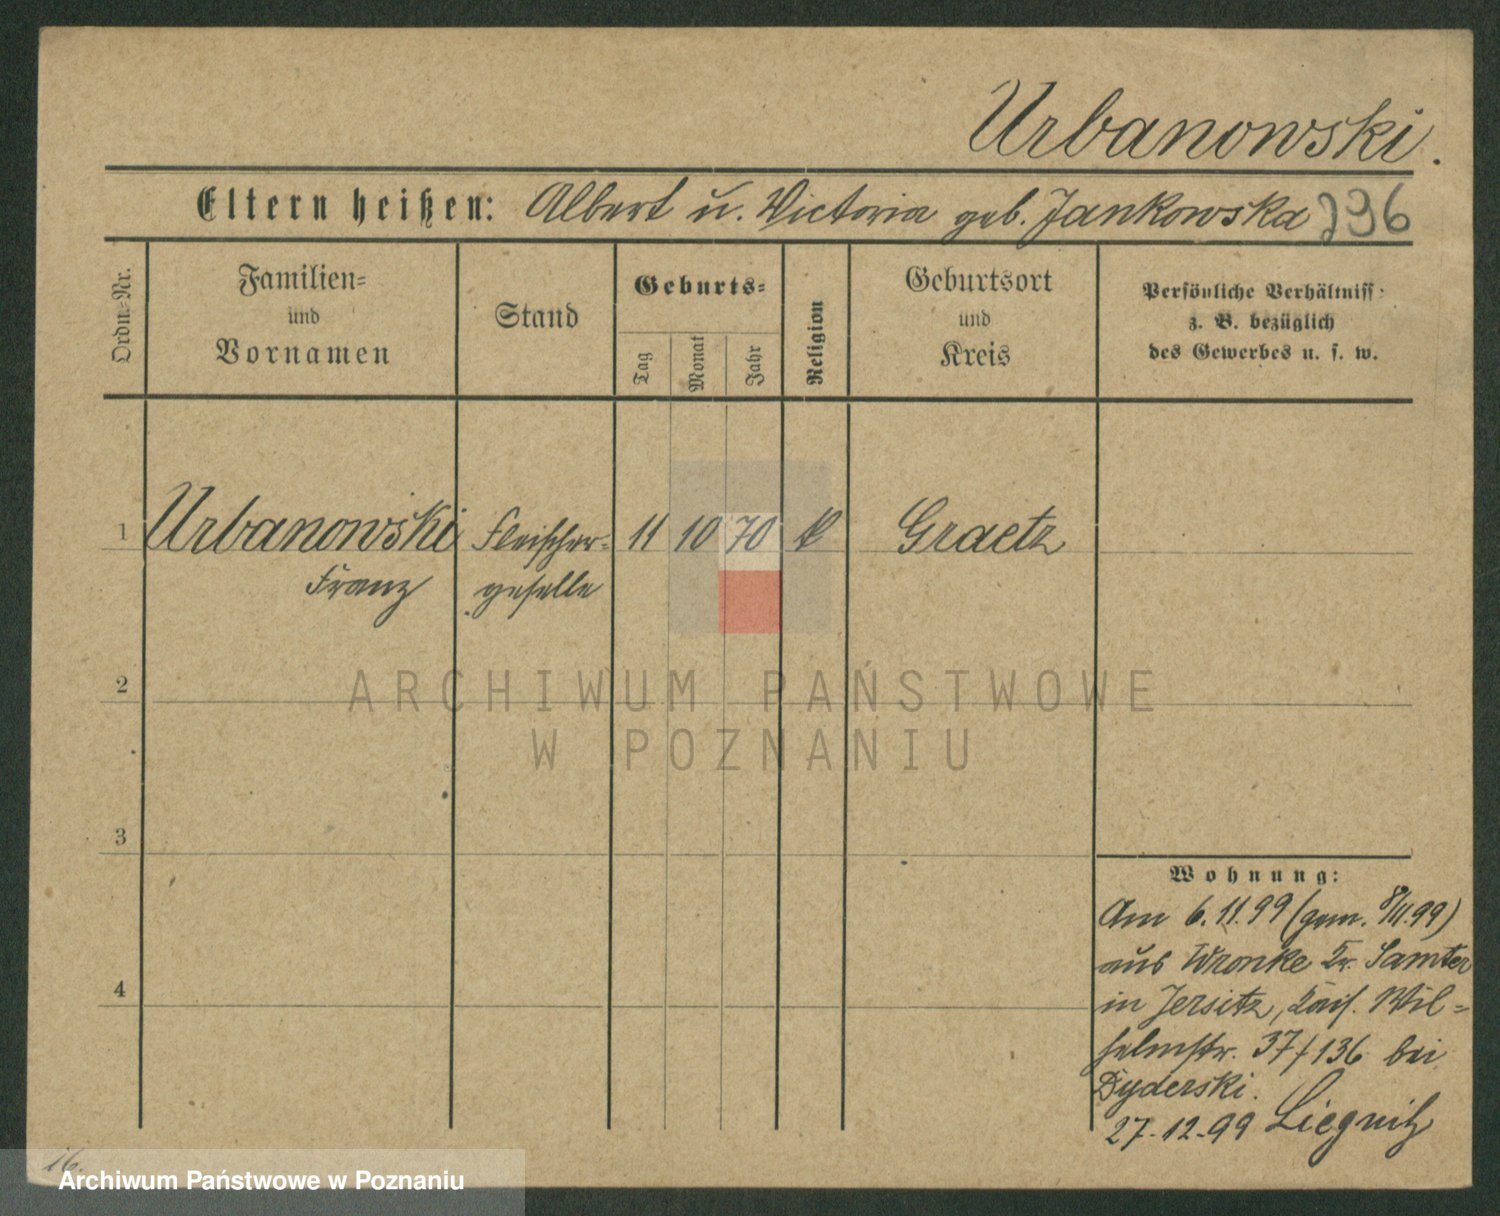 Urbanowski.
Eltern heißen: Albert u. Victoria geb. Jankowska 796
Ordn.-Nr.
Familien-
und
Vornamen
Stand
Geburts-
Tag
Monat
Jahr
Religion
Geburtsort
und
Kreis
Persönliche Verhältniss
z. B. bezüglich
des Gewerbes u. s. w.
1 Urbanowski Fleischer- 11 10 70 k Graetz
Franz geselle
2
ARCHIWUM PAŃSTWOWE
W POZNANIU
3
Wohnung:
Am 6.11.99 (gem. 8/11.99)
aus Wronke Kr. Samter
in Jersitz, Kais. Wil-
helmstr. 37/136 bei
Dyderski.
27.12.99 Liegnitz
4
16.
Archiwum Państwowe w Poznaniu